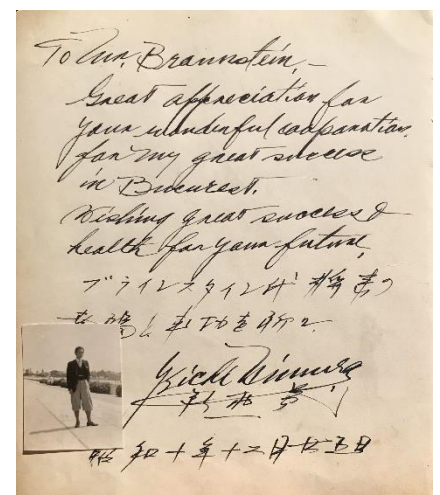 To Mr. Braunstein, –
Great appreciation for
your wonderful cooperation,
for my great success
in Bucurest.
Wishing great success &
health for your future.
ブラインスタイン 将来の
と成功を祈
Yeichi Nimura
昭和十年十二月廿五日